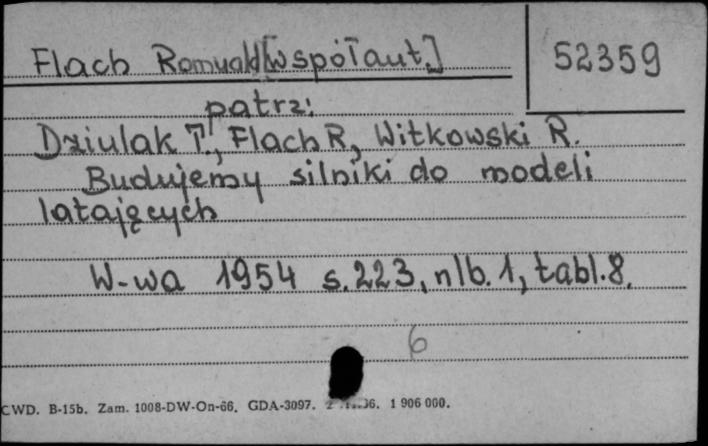 Flach Romuald [współaut.]
52359
patrz:
Dziulak T., Flach R, Witkowski R.
Budujemy silniki do modeli
latających
W-wa 1954 s. 223, nlb. 1, tabl. 8.
6
CWD. B-15b. Zam. 1008-DW-On-66. GDA-3097. 1 906 000.